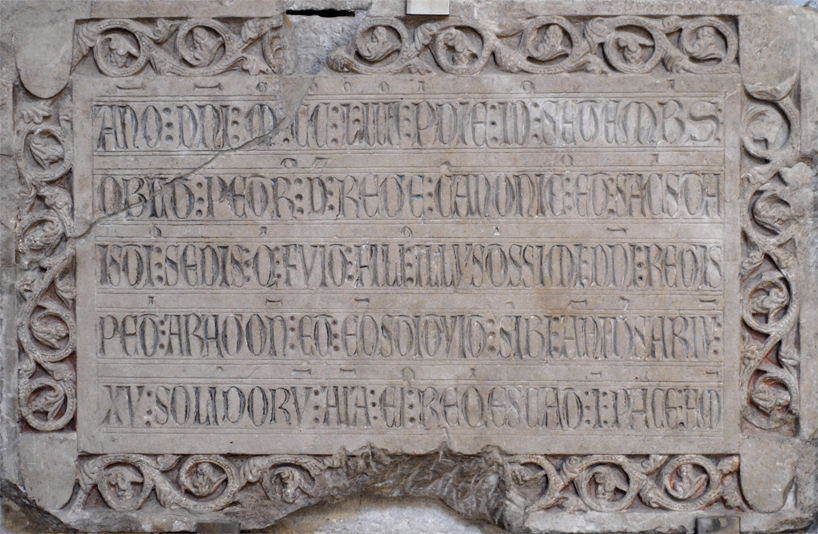 ANO : DNI : M : CC : L : IIII : P DIE : ID : SETEMBS :
OBIIT : PETR : D : REGE : CANONIC : ET : SACSTA
ISTI : SEDIS : Q : FUIT : FIL : ILLUSTSSIMI : DNI : REGIS
PET : ARAGON : ET : COSTITUIT : SIBI : ANIUSARIU :
XV : SOLIDORU : AIA : EI : REQESCAT : I : PACE : AM